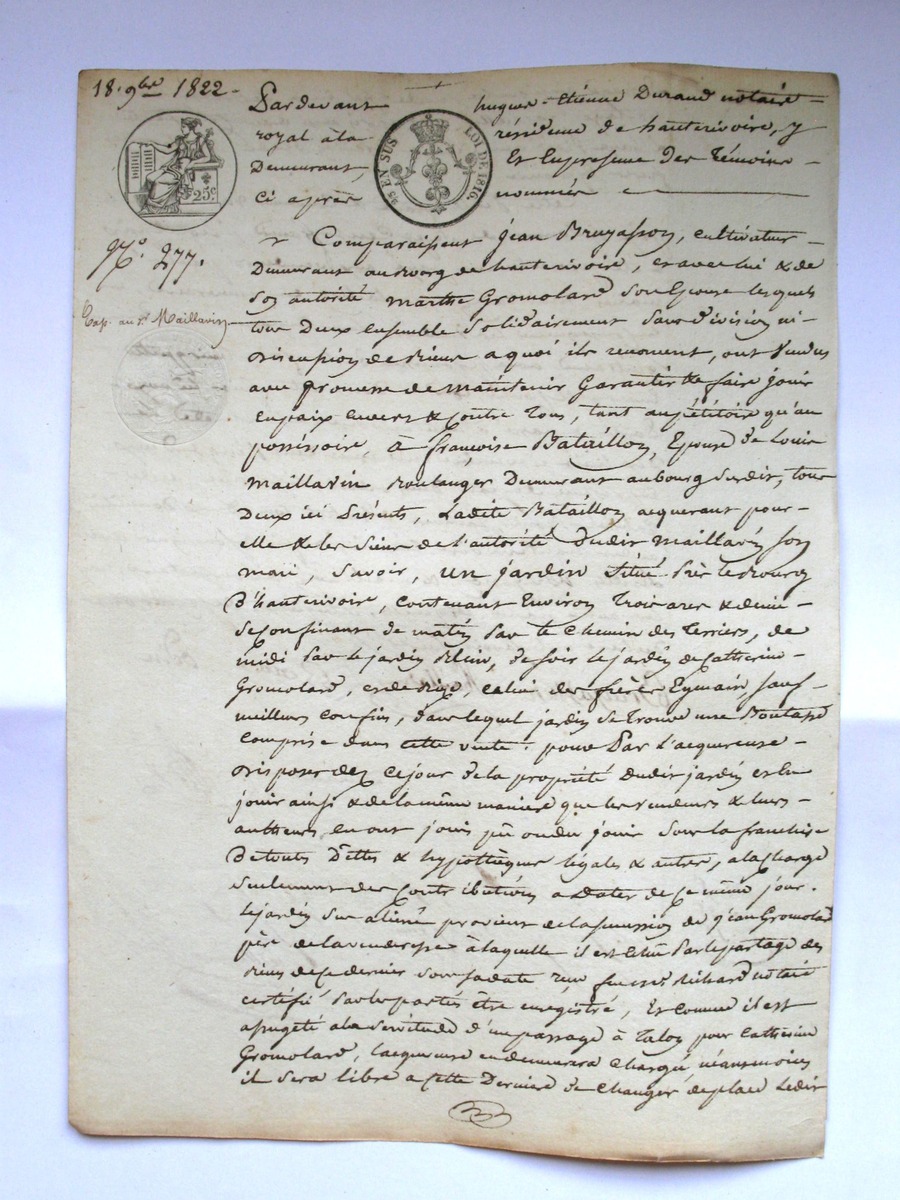 18. 9bre 1822.
Pardevant hugues-Etienne Durand notaire
royal à la résidence de hauterivoire, y
Demeurant, Et En presence Des Témoins
Ci après nommés
25 EN SUS LOI DE 1816.
25c.
No. 277.
Exp. au Sr Maillavin
Comparaissent Jean Bruyasson, cultivateur
Demeurant au Bourg de hauterivoire, et avec lui & de
Son autorité marthe Gromolard Son Epouse lesquels
tous Deux ensemble Solidairement Sans division ni
discussion de biens a quoi ils renoncent, ont Vendus
avec promesse de maintenir Garantir & faire jouir
En paix Envers & Contre Tous, tant au pétitoire qu'au
possessoire, à françoise Bataillon, Epouse de Louis
Maillavin Boulanger Demeurant au bourg Susdit, tous
Deux ici Présents, Ladite Bataillon acquerant pour
elle & les Siens de l'autorité dudit Maillavin Son
mari, Savoir, un jardin Situé Près le Bourg
d'hauterivoire, Contenant Environ Trois ares & demi
Se Confinant de matin Par le Chemin des Terriers, de
midi Par le jardin de Soir le jardin de Catherine
Gromolard, et de Bize, Celui des frères Eymain, Sauf
meilleurs Confins, dans lequel jardin Se Trouve une Boutasse
Comprise dans Cette vente. pour Par L'acquereuse
disposer dez Ce jour de la propriété dudit jardin et En
jouir ainsi & de la même maniere que les vendeurs & leurs
autheurs en ont jouis pû ou du jouir Sous la franchise
De toutes Dettes & hypothèques légales & autres, a la Charge
Seulement des Contributions a Dater de Ce même jour.
Le jardin Sus aliéné provient de la Succession de Jean Gromolard
père de la venderesse à laquelle il est échu Par le partage des
biens de Ce dernier Sous Sa date reçu Me Richard notaire
certifié Par les parties être enregistré, Et Comme il est
assujeté a la Servitude d'un passage à Talon pour Catherine
Gromolard, l'acquereuse en demeurera Chargée néanmoins
il Sera libre a Cette Derniere de Changer de place Ledit